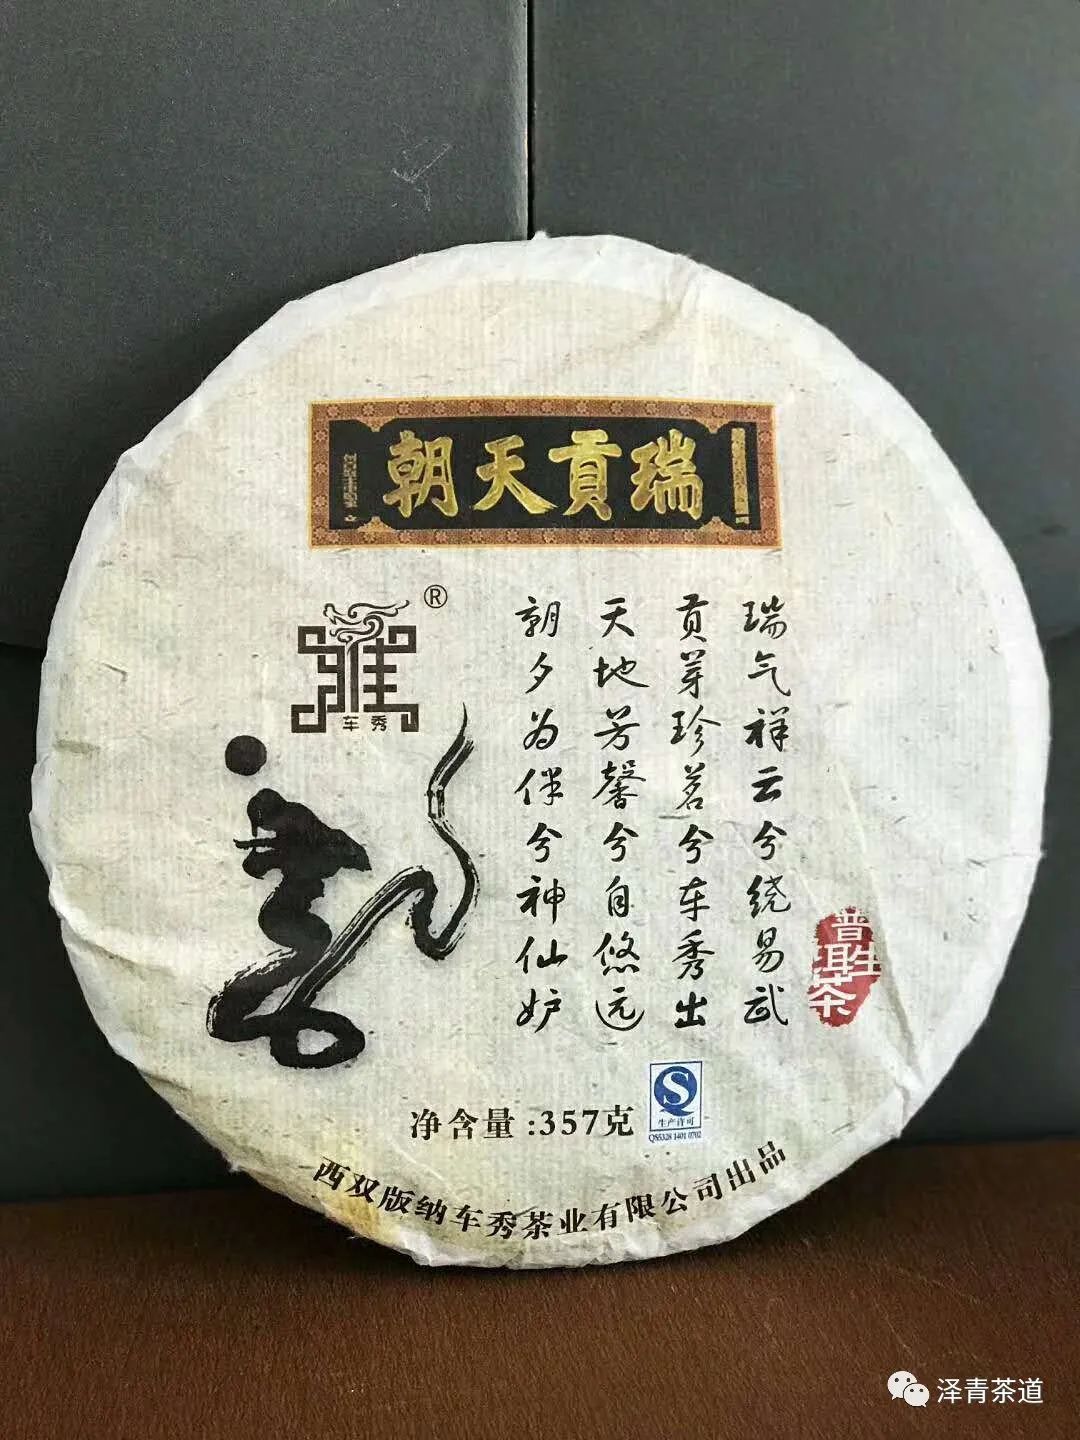 朝天貢瑞
®
车秀
瑞气祥云兮绕易武
貢芽珍茗兮车秀出
天地芳馨兮自悠远
朝夕为伴兮神仙妒
普洱生茶
净含量:357克
生产许可
QS5328 1401 0702
西双版纳车秀茶业有限公司出品
泽青茶道